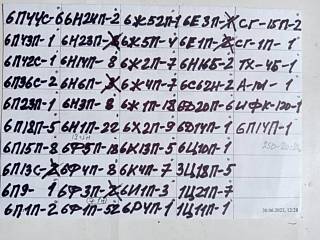 6П44С-6 6Н24П-2 6Ж52П-1 6Е3П-1 СГ-15П-2
6П43П-1 6Н23П- 6Ж5П-4 6Е1П- СГ-1П-1
6П42С-1 6Н14П-8 6Ж2П-7 6Н16Б-2 ТХ-4Б-1
6П36С-2 6Н6П- 6Ж4П-7 6С62Н-2
6П23П-1 6Н3П-8 6Ж1П-18 6Д20П-6 ИФК-120-1
6П18П-5 6Н1П-22 6Х2П-9 6Д14П-1 6П14П-1
6П15П-8 6Ф5П-13 6К13П-5 6Ц10П-1
6П13С-2 6Ф4П-8 6К4П-7 3Ц18П-5
6П9-1 6Ф3П- 6И1П-3 1Ц21П-7
6П1П-2 6Ф1П-52 6Р4П-1 1Ц11П-1
30.06.2023, 12:28